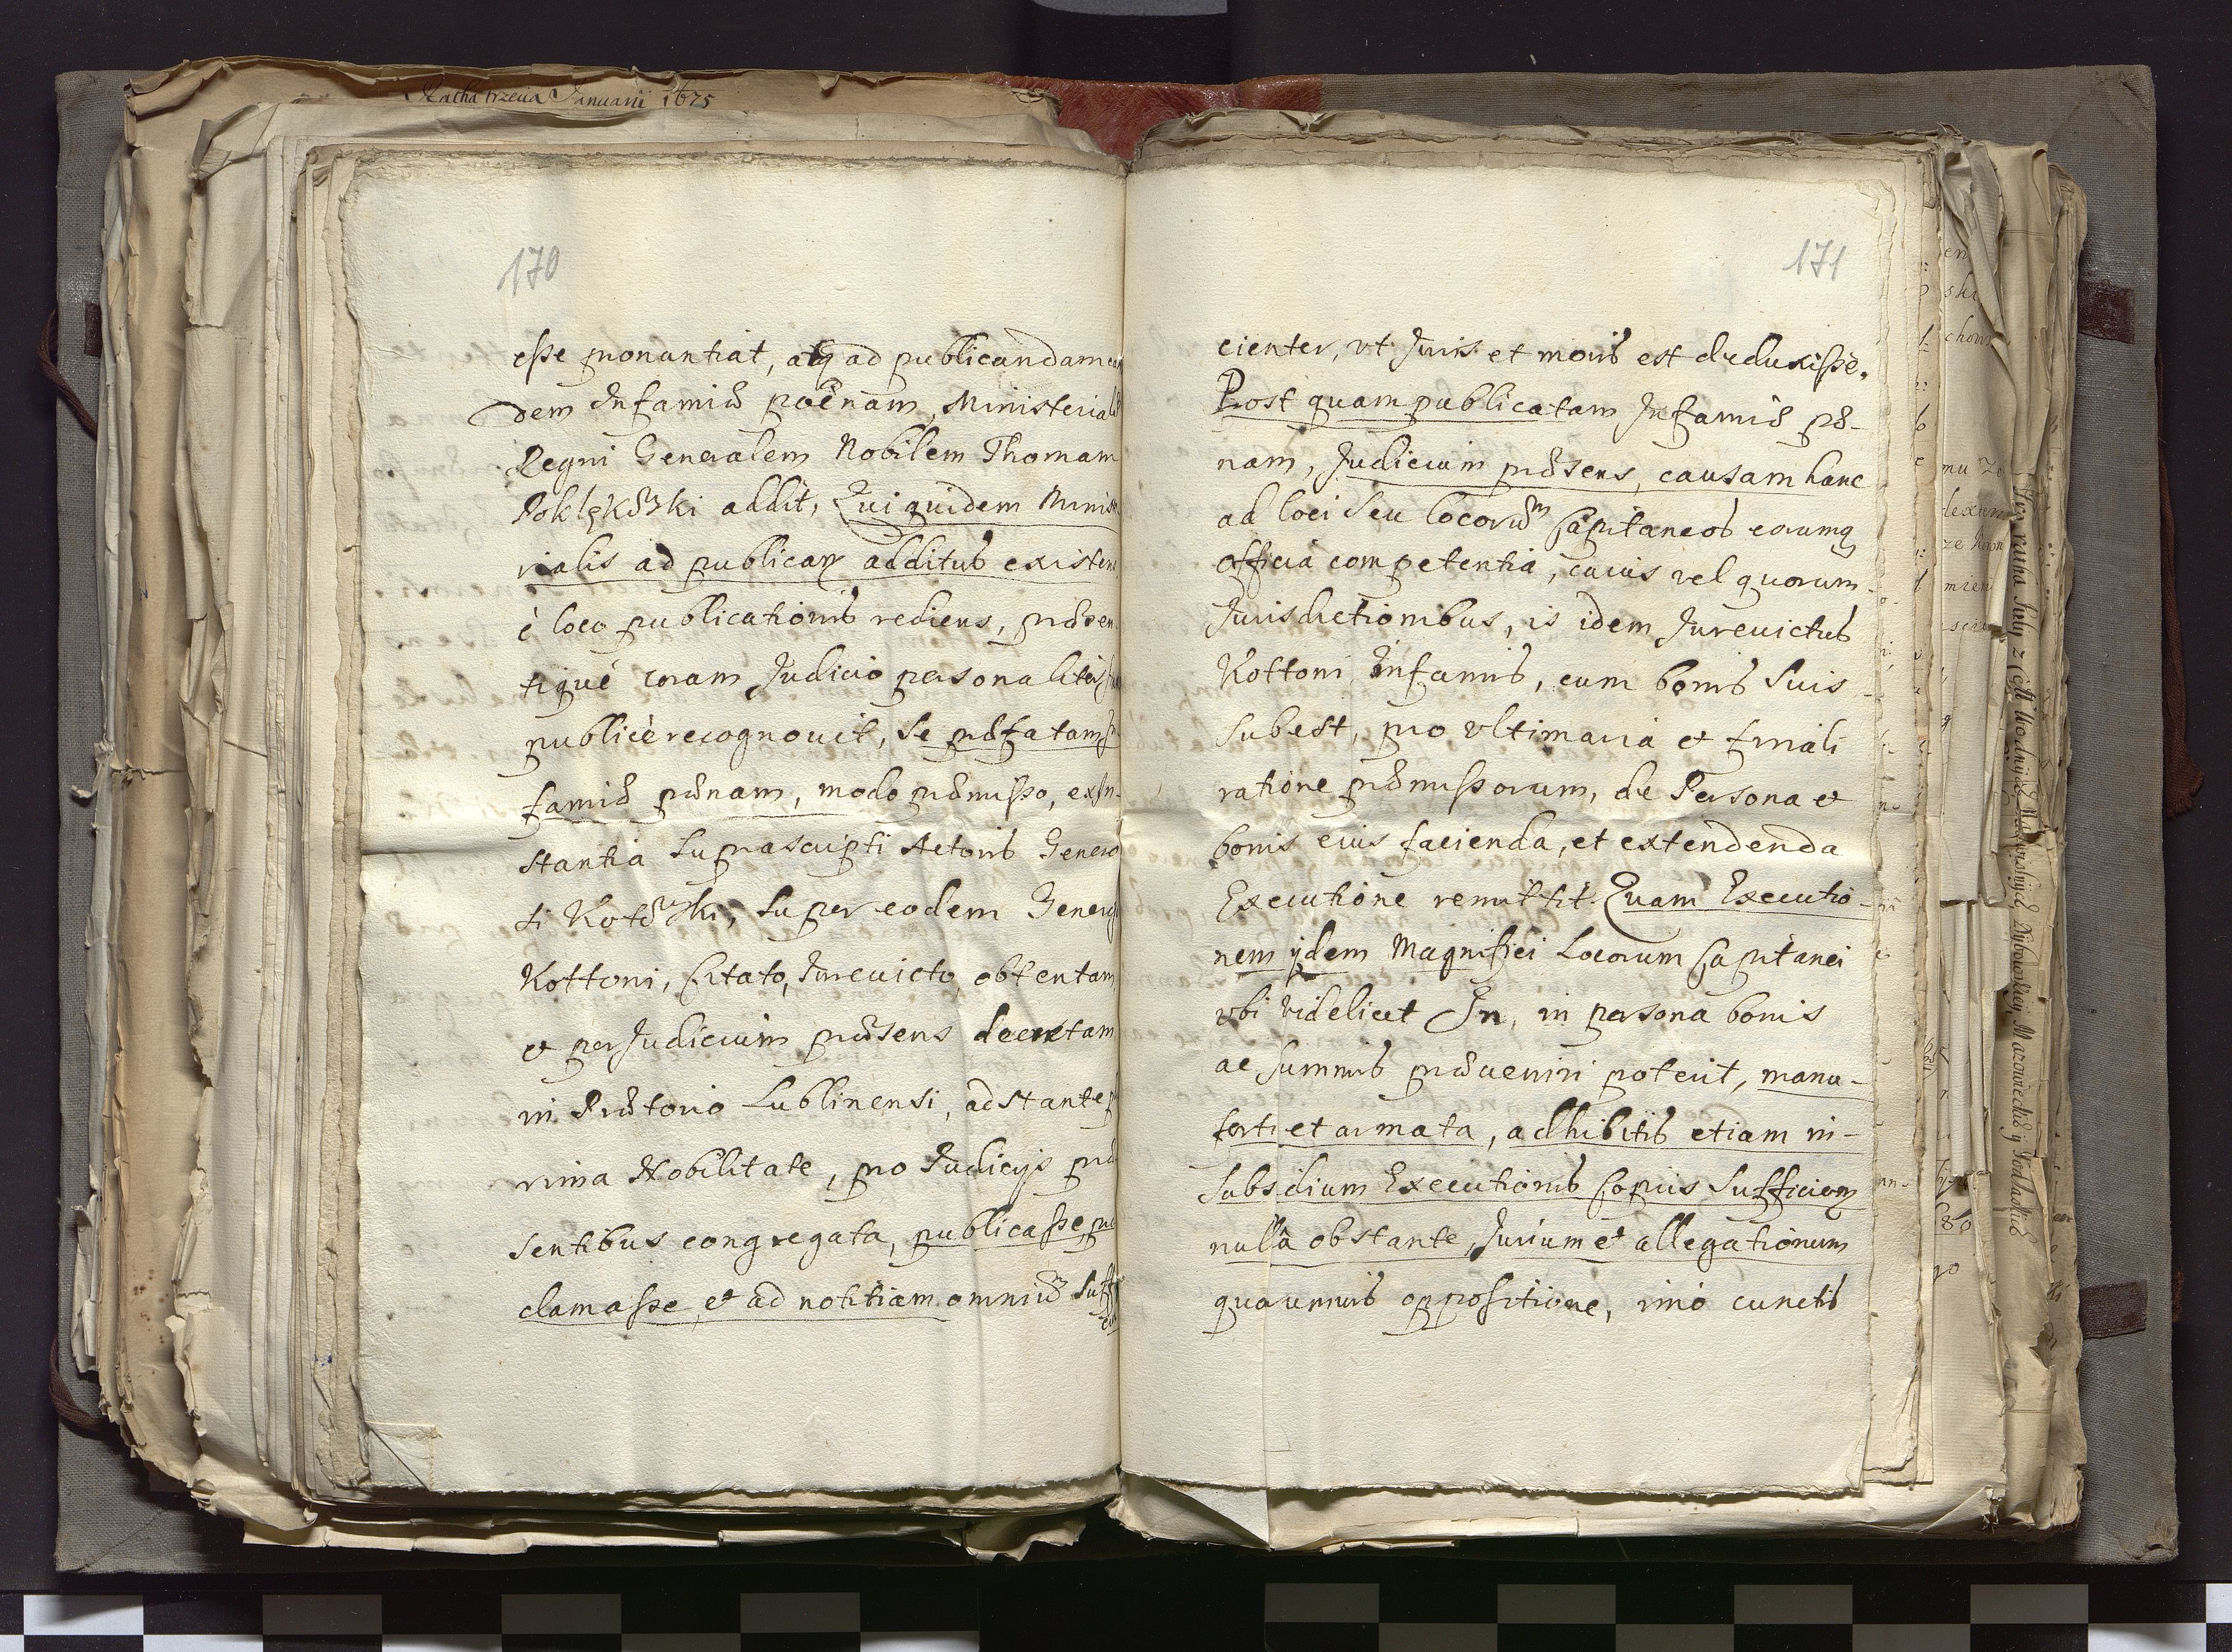 Ratha trzecia Januarii 1675
170
esse pronuntiat, atq ad publicandam ean
dem Infamiæ poenam, Ministeriale
Regni Generalem Nobilem Thomam
Poklękowski addit, Qui quidem Minis
rialis ad publican additus existens
è loco publicationis rediens, præsen
tiquè coram Judicio personaliter
publicè recognouit, Se præfatam
famiæ pænam, modo præmisso, ex In
stantia Suprascripti Actoris Genero
si Kotowski, Super eodem Genero
Kottoni, Citato, Jurevicto, obtentam
et per Judicium præsens decretam
in Prætorio Lublinensi, adstante
rima Nobilitate, pro Judicijs præ
sentibus congregata, publicasse, pro
clamasse, et ad notitiam omniũ Suffi
171
cienter, vt Juris et moris est deduxisse.
Post quam publicatam Infamiæ pæ-
nam, Judicium præsens, causam hanc
ad loci Seu locorũm Capitaneos eorumq
officia competentia, cuius vel quorum
Jurisdictionibus, is idem Jurevictus
Kottoni Infamis, cum bonis Suis
Subest, pro vltimaria et finali
ratione præmissorum, de Persona et
bonis eius facienda, et extendenda
Executione remittit. Quam Executio-
nem ijdem Magnifici Locorum Capitanei
vbi videlicet In, in persona bonis
ac Summis præueniri poterit, manu-
forti et armata, adhibitis etiam in-
Subsidium Executionis Copiis Sufficien
nullâ obstante, Jurium et allegationum
quarumuis oppositione, imò cunctis